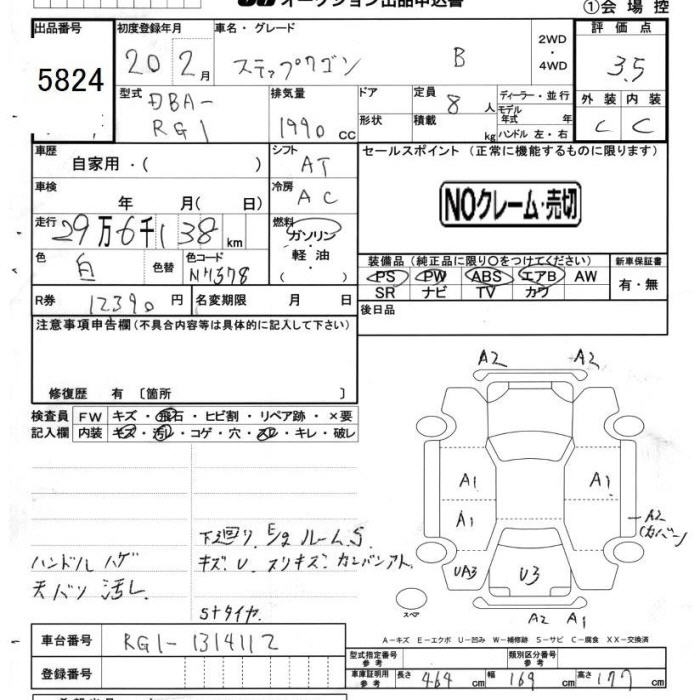 オークション出品申込書
①会場控
出品番号 初度登録年月 車名・グレード 評価点
5824 20 2月 ステップワゴン B 2WD・4WD 3.5
型式 DBA-RG1 排気量 1990cc ドア 定員 8人 ディーラー・並行 外装 内装
形状 積載 kg モデル年式 年 C C
ハンドル 左・右
車歴 自家用・( ) シフト AT セールスポイント(正常に機能するものに限ります)
車検 年 月( 日) 冷房 AC NOクレーム・売切
走行 29万6千138km 燃料 ガソリン・軽油・( )
色 白 色替 色コード NH578 装備品(純正品に限り○をつけてください) 新車保証書
PS PW ABS エアB AW 有・無
SR ナビ TV カワ
R券 12390円 名変期限 月 日 後日品
注意事項申告欄(不具合内容等は具体的に記入して下さい)
修復歴 有〔箇所 〕
検査員 FW キズ・飛石・ヒビ割・リペア跡・×要
記入欄 内装 キズ・汚レ・コゲ・穴・スレ・キレ・破レ
A2 A2
A1 A1
A1
A2(カバー)
UA3 U3
A2 A1
スペア
下廻り、E/gルームS
ハンドルハゲ キズ、U スリキズ、カンバンアト、
天バリ汚レ
Sトタイヤ
A-キズ E-エクボ U-凹み W-補修跡 S-サビ C-腐食 XX-交換済
車台番号 RG1-1314112 型式指定番号 参考 類別区分番号 参考
登録番号 車庫証明用 参考 長さ 464cm 幅 169cm 高さ 177cm